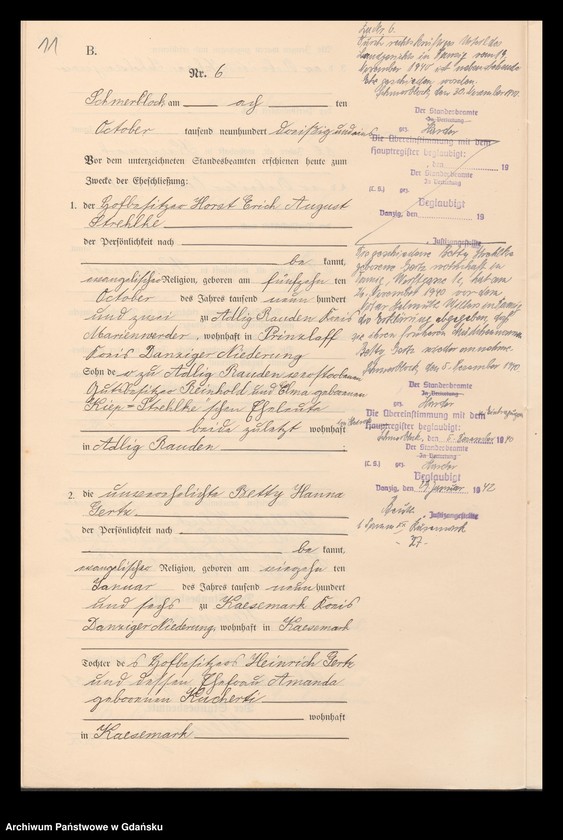 11
B.
Nr. 6
Schmerblock am acht ten
October tausend neunhundert dreißig und eins
Vor dem unterzeichneten Standesbeamten erschienen heute zum
Zwecke der Eheschließung:
1. der Hofbesitzer Horst Erich August
Strehlke
der Persönlichkeit nach
be kannt,
evangelischer Religion, geboren am fünfzehn ten
October des Jahres tausend neun hundert
und zwei zu Adlig Rauden Kreis
Marienwerder, wohnhaft in Prinzlaff
Kreis Danziger Niederung
Sohn de r zu Adlig Rauden verstorbenen
Gutsbesitzer Reinhold und Elma geborenen
Kiep-Strehlke'schen Eheleute
beide zuletzt wohnhaft
in Adlig Rauden
2. die unverehelichte Betty Hanna
Gertz
der Persönlichkeit nach
be kannt,
evangelischer Religion, geboren am vierzehn ten
Januar des Jahres tausend neun hundert
und sechs zu Kaesemark Kreis
Danziger Niederung, wohnhaft in Kaesemark
Tochter de s Hofbesitzers Heinrich Gertz
und dessen Ehefrau Amanda
geborenen
wohnhaft
in Kaesemark
Zu Nr. 6.
Durch rechtskräftiges Urteil des
Landgerichts in Danzig vom
November 1940 ist nebenstehende
Ehe geschieden worden.
Schmerblock, den 30. November 1940.
Der Standesbeamte
In Vertretung
gez. Harder
Die Übereinstimmung mit dem
Hauptregister beglaubigt:
, den 19
Der Standesbeamte
In Vertretung
(L. S.) gez.
Beglaubigt
Danzig, den 19
Justizangestellte
Die geschiedene Betty Strehlke
geborene Gertz wohnhaft in
Danzig, hat am
November 1940 vor dem
Notar
die Erklärung abgegeben, daß
sie ihren früheren Mädchennamen
Betty Gertz wieder annehme.
Schmerblock, den 5. Dezember 1940.
Der Standesbeamte
In Vertretung
gez. Harder
Die Übereinstimmung mit dem
Hauptregister beglaubigt:
Schmerblock, den 5. Dezember 1940
Der Standesbeamte
In Vertretung
(L. S.) gez. Harder
Beglaubigt
Danzig, den Januar 1942
Justizangestellte
Archiwum Państwowe w Gdańsku